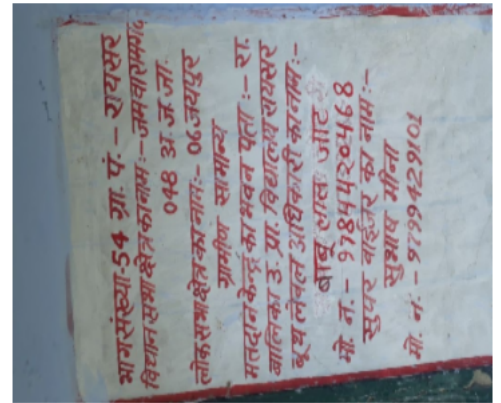 भाग संख्या-54 ग्रा. पं. - रायसर
विधान सभा क्षेत्र का नाम :- जमवारामगढ़
048 अ.ज.जा.
लोकसभा क्षेत्र का नाम :- 06 जयपुर
ग्रामीण सामान्य
मतदान केन्द्र का भवन पता :- रा.
बालिका उ. प्रा. विद्यालय रायसर
बूथ लेवल अधिकारी का नाम :-
बाबू लाल जाट
मो. न. - 9784420468
सुपर वाईजर का नाम :-
सुभाष मीना
मो. नं. - 9799429101